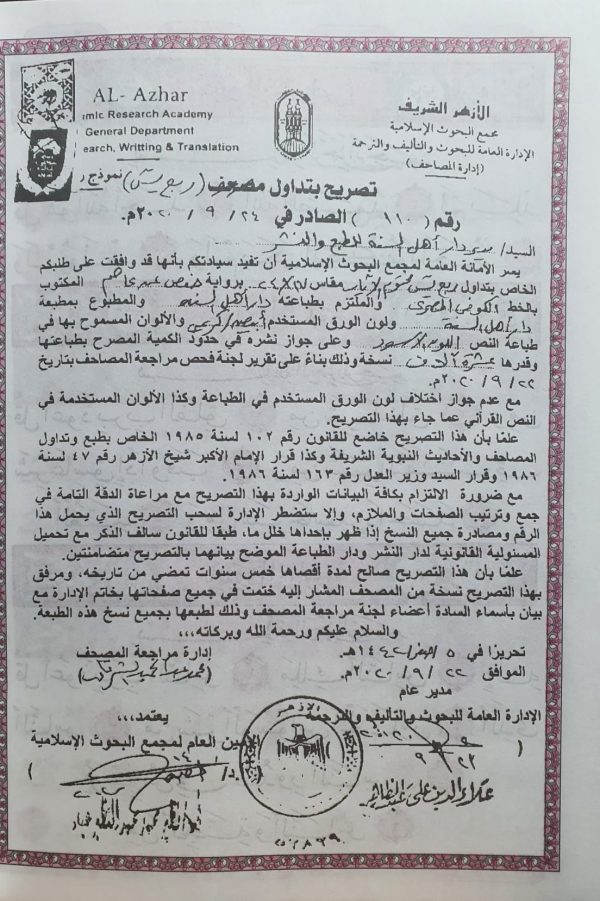 AL- Azhar
amic Research Academy
General Department
earch, Writting & Translation
الأزهر الشريف
مجمع البحوث الإسلامية
الإدارة العامة للبحوث والتأليف والترجمة
(إدارة المصاحف)
تصريح بتداول مصحف (ربع يس) نموذج
رقم (١١٠) الصادر في ٢٤ / ٩ / ٢٠٢٠م.
السيد/ مدير دار أهل السنة للطبع والنشر
يسر الأمانة العامة لمجمع البحوث الإسلامية أن تفيد سيادتكم بأنها قد وافقت على طلبكم
الخاص بتداول ربع يس مقاس برواية حفص عن عاصم المكتوب
بالخط الكوفي والملتزم بطباعته دار أهل السنة والمطبوع بمطبعة
دار أهل السنة ولون الورق المستخدم أبيض / كريمي والألوان المسموح بها في
طباعة النص اللون الأسود وعلى جواز نشره في حدود الكمية المصرح بطباعتها
وقدرها عشرة آلاف نسخة وذلك بناءً على تقرير لجنة فحص مراجعة المصاحف بتاريخ
٢٢ / ٩ / ٢٠٢٠م.
مع عدم جواز اختلاف لون الورق المستخدم في الطباعة وكذا الألوان المستخدمة في
النص القرآني عما جاء بهذا التصريح.
علمًا بأن هذا التصريح خاضع للقانون رقم ١٠٢ لسنة ١٩٨٥ الخاص بطبع وتداول
المصاحف والأحاديث النبوية الشريفة وكذا قرار الإمام الأكبر شيخ الأزهر رقم ٤٧ لسنة
١٩٨٦ وقرار السيد وزير العدل رقم ١٦٣ لسنة ١٩٨٦.
مع ضرورة الالتزام بكافة البيانات الواردة بهذا التصريح مع مراعاة الدقة التامة في
جمع وترتيب الصفحات والملازم، وإلا ستضطر الإدارة لسحب التصريح الذي يحمل هذا
الرقم ومصادرة جميع النسخ إذا ظهر بإحداها خلل ما، طبقا للقانون سالف الذكر مع تحميل
المسئولية القانونية لدار النشر ودار الطباعة الموضح بيانهما بالتصريح متضامنتين.
علمًا بأن هذا التصريح صالح لمدة أقصاها خمس سنوات تمضي من تاريخه، ومرفق
بهذا التصريح نسخة من المصحف المشار إليه ختمت في جميع صفحاتها بخاتم الإدارة مع
بيان بأسماء السادة أعضاء لجنة مراجعة المصحف وذلك لطبعها بجميع نسخ هذه الطبعة.
والسلام عليكم ورحمة الله وبركاته،،،
تحريرًا في ٥ / صفر / ١٤٤٢هـ.
إدارة مراجعة المصحف
الموافق ٢٢ / ٩ / ٢٠٢٠م.
مدير عام
الإدارة العامة للبحوث والتأليف والترجمة
يعتمد،،،
الأمين العام لمجمع البحوث الإسلامية
الأزهر
علاء الدين على عبد الظاهر